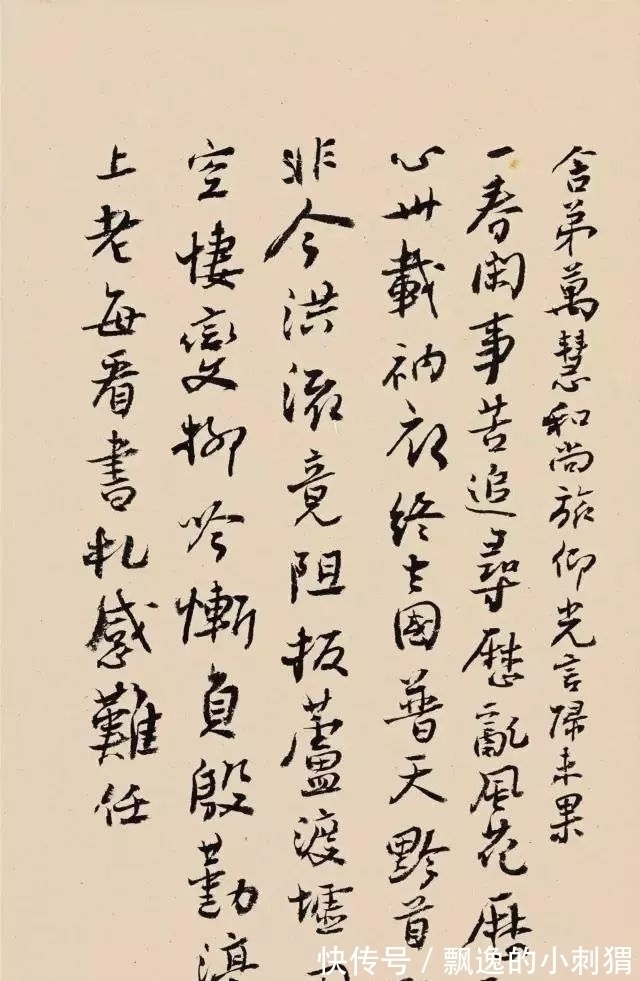 舍弟萬慧和尚旅仰光言歸未果
一春閑事苦追尋歷亂風花歷
心卅載衲衣終去國普天黔首
非今洪流竟阻扳蘆渡墟
空悽變柳吟慚負殷勤滇
上老每看書札感難任
快传号/飘逸的小刺猬